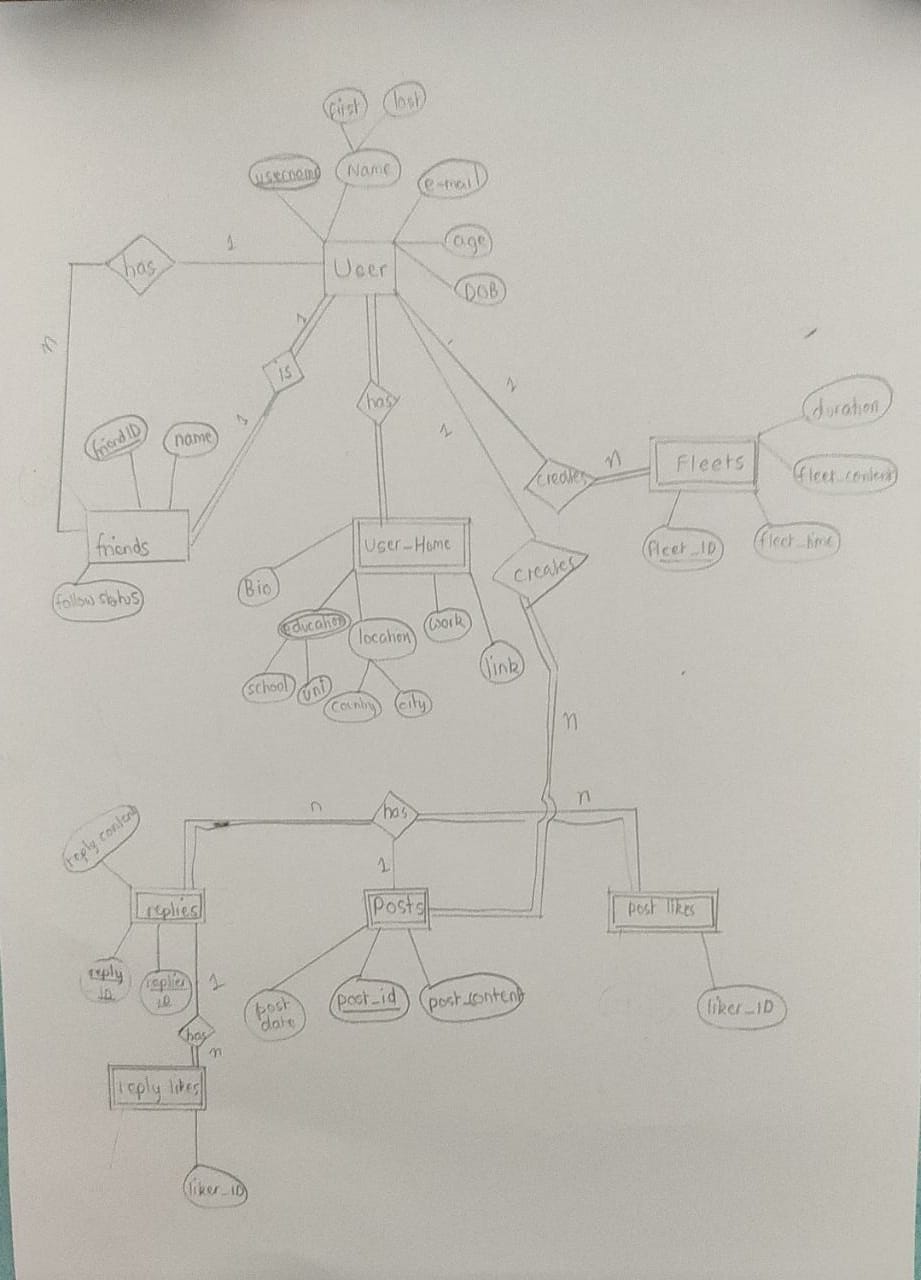 first
last
username
Name
e-mail
age
DOB
User
has
1
n
is
1
1
has
1
1
creates
n
Fleets
duration
fleet_content
fleet_ID
fleet_time
friendID
name
friends
follow status
User-Home
Bio
education
school
uni
location
country
city
work
link
creates
n
has
n
n
1
reply content
replies
reply
ID
replier
ID
1
has
n
reply likes
liker_ID
Posts
post
date
post_id
post_content
post likes
liker_ID